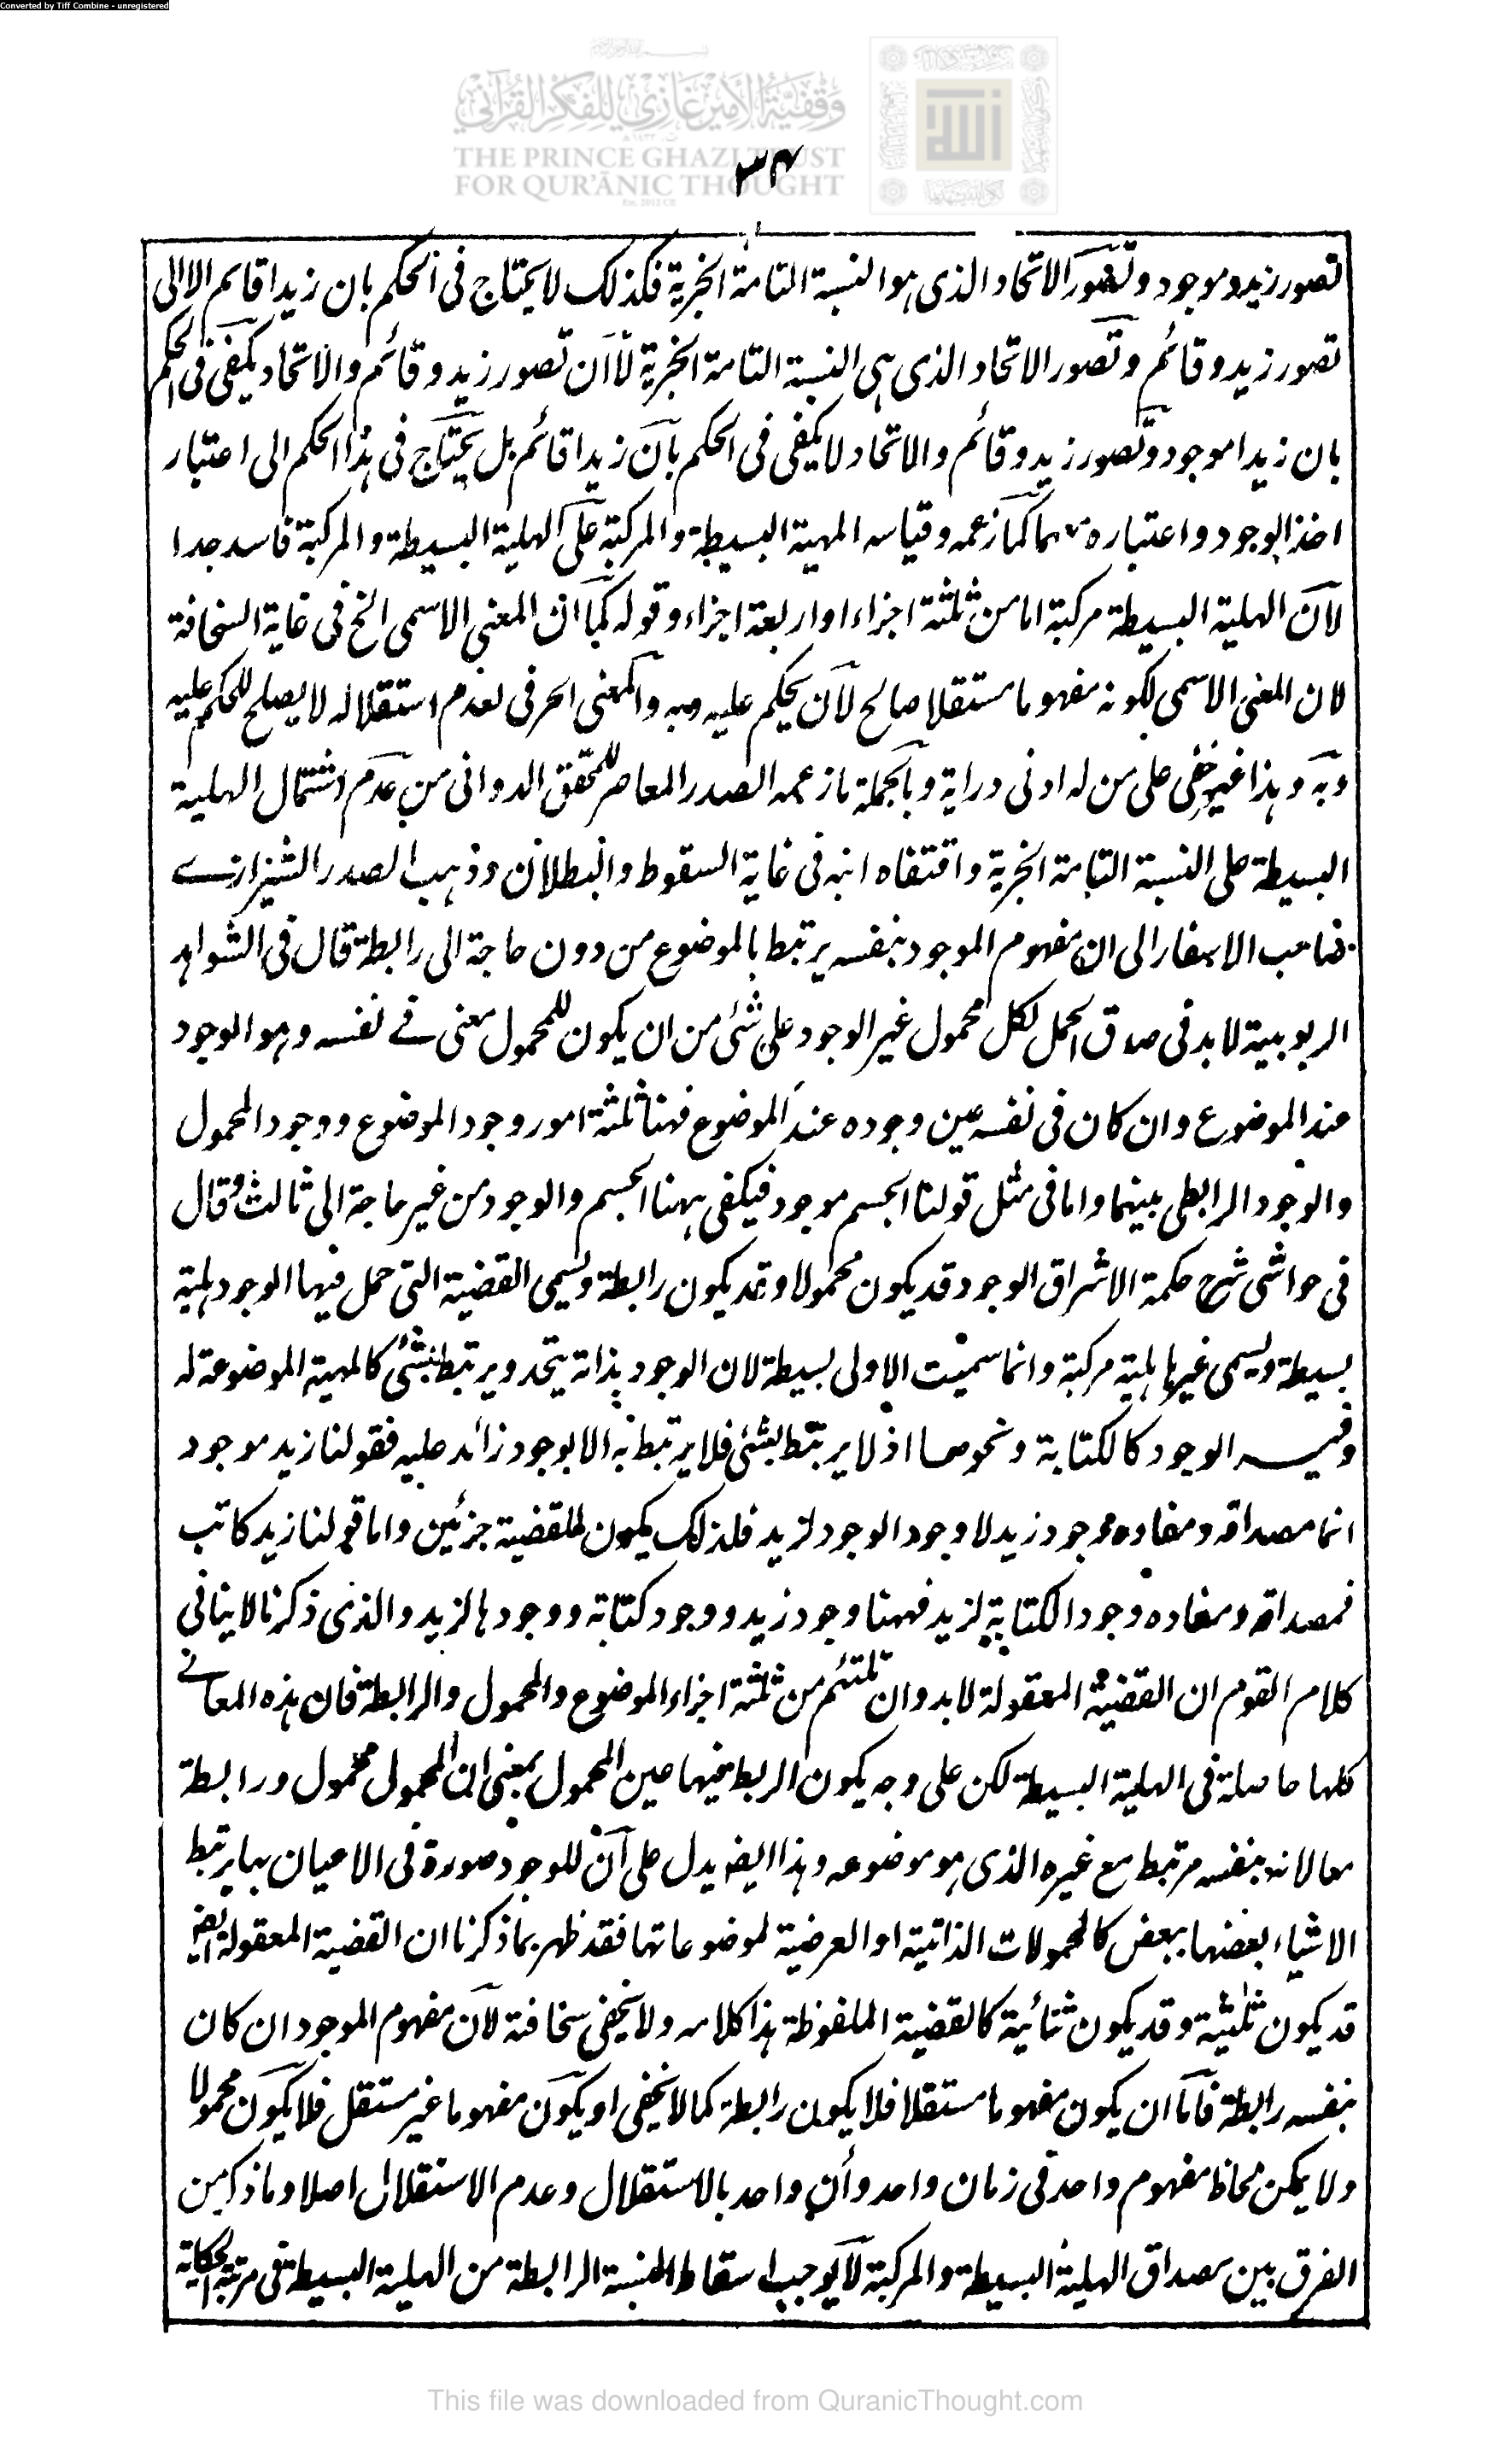 Converted by Tiff Combine - unregistered
وقفية الأمير غازي للفكر القرآني
THE PRINCE GHAZI TRUST
FOR QUR'ĀNIC THOUGHT
٣٤
تصور زيد وموجود وتصور الاتحاد الذى هو النسبة التامة الخبرية فكذلك لا يحتاج فى الحكم بان زيدا قائم الا الى
تصور زيد وقائم وتصور الاتحاد الذى هى النسبة التامة الخبرية لا ان تصور زيد وقائم والاتحاد يكفى فى الحكم
بان زيدا موجود وتصور زيد وقائم والاتحاد لا يكفى فى الحكم بان زيدا قائم بل يحتاج فى هذا الحكم الى اعتبار
اخذ الوجود واعتباره كما زعمه وقياس المهية البسيطة والمركبة على الهلية البسيطة والمركبة فاسد جدا
لان الهلية البسيطة مركبة اما من ثلثة اجزاء او اربعة اجزاء وقوله كما ان المعنى الاسمى الخ فى غاية السخافة
لان المعنى الاسمى لكونه مفهوما مستقلا صالح لان يحكم عليه وبه والمعنى الحرفى لعدم استقلاله لا يصلح للحكم عليه
وبه وهذا غير خفى على من له ادنى دراية وبالجملة ما زعمه الصدر المعاصر للمحقق الدوانى من عدم اشتمال الهلية
البسيطة على النسبة التامة الخبرية واقتفاه ابنه فى غاية السقوط والبطلان وذهب الصدر الشيرازى
صاحب الاسفار الى ان مفهوم الموجود بنفسه يرتبط بالموضوع من دون حاجة الى رابطة قال فى الشواهد
الربوبية لا بد فى صدق الحمل لكل محمول غير الوجود على شئ من ان يكون للمحمول معنى فى نفسه وهو الوجود
عند الموضوع وان كان فى نفسه عين وجوده عند الموضوع فهنا ثلثة امور وجود الموضوع ووجود المحمول
والوجود الرابطى بينهما واما فى مثل قولنا الجسم موجود فيكفى ههنا الجسم والوجود من غير حاجة الى ثالث وقال
فى حواشى شرح حكمة الاشراق الوجود قد يكون محمولا وقد يكون رابطة ويسمى القضية التى حمل فيها الوجود هلية
بسيطة ويسمى غيرها هلية مركبة وانما سميت الاولى بسيطة لان الوجود بذاته يتحد ويرتبط بشئ كالمهية الموضوعة له
وغير الوجود كالكتابة ونحوها اذ لا يرتبط بشئ فلا يرتبط به الا بوجود زائد عليه فقولنا زيد موجود
انما مصداقه ومفاده وجود زيد لا وجود الوجود لزيد فلذلك يكون للقضية جزئين واما قولنا زيد كاتب
فمصداقه ومفاده وجود الكتابة لزيد فههنا وجود زيد ووجود كتابة ووجودها لزيد والذى ذكرنا لا ينافى
كلام القوم ان القضية المعقولة لا بد وان تلتئم من ثلثة اجزاء الموضوع والمحمول والرابطة فان هذه المعانى
كلها حاصلة فى الهلية البسيطة لكن على وجه يكون الربط فيها عين المحمول بمعنى ان المحمول محمول ورابطة
معا لانه بنفسه مرتبط مع غيره الذى هو موضوعه وهذا ايضا يدل على ان للوجود صورة فى الاعيان بها يرتبط
الاشياء بعضها ببعض كالمحمولات الذاتية او العرضية لموضوعاتها فقد ظهر بما ذكرنا ان القضية المعقولة ايضا
قد يكون ثلثية وقد يكون ثنائية كالقضية الملفوظة هذا كلامه ولا يخفى سخافته لان مفهوم الموجود ان كان
بنفسه رابطة فاما ان يكون مفهوما مستقلا فلا يكون رابطة كما لا يخفى او يكون مفهوما غير مستقل فلا يكون محمولا
ولا يمكن لحاظ مفهوم واحد فى زمان واحد وأن واحد بالاستقلال وعدم الاستقلال اصلا وما ذكر من
الفرق بين مصداق الهلية البسيطة والمركبة لا يوجب اسقاط النسبة الرابطة من الهلية البسيطة فى مرتبة الحكاية
This file was downloaded from QuranicThought.com